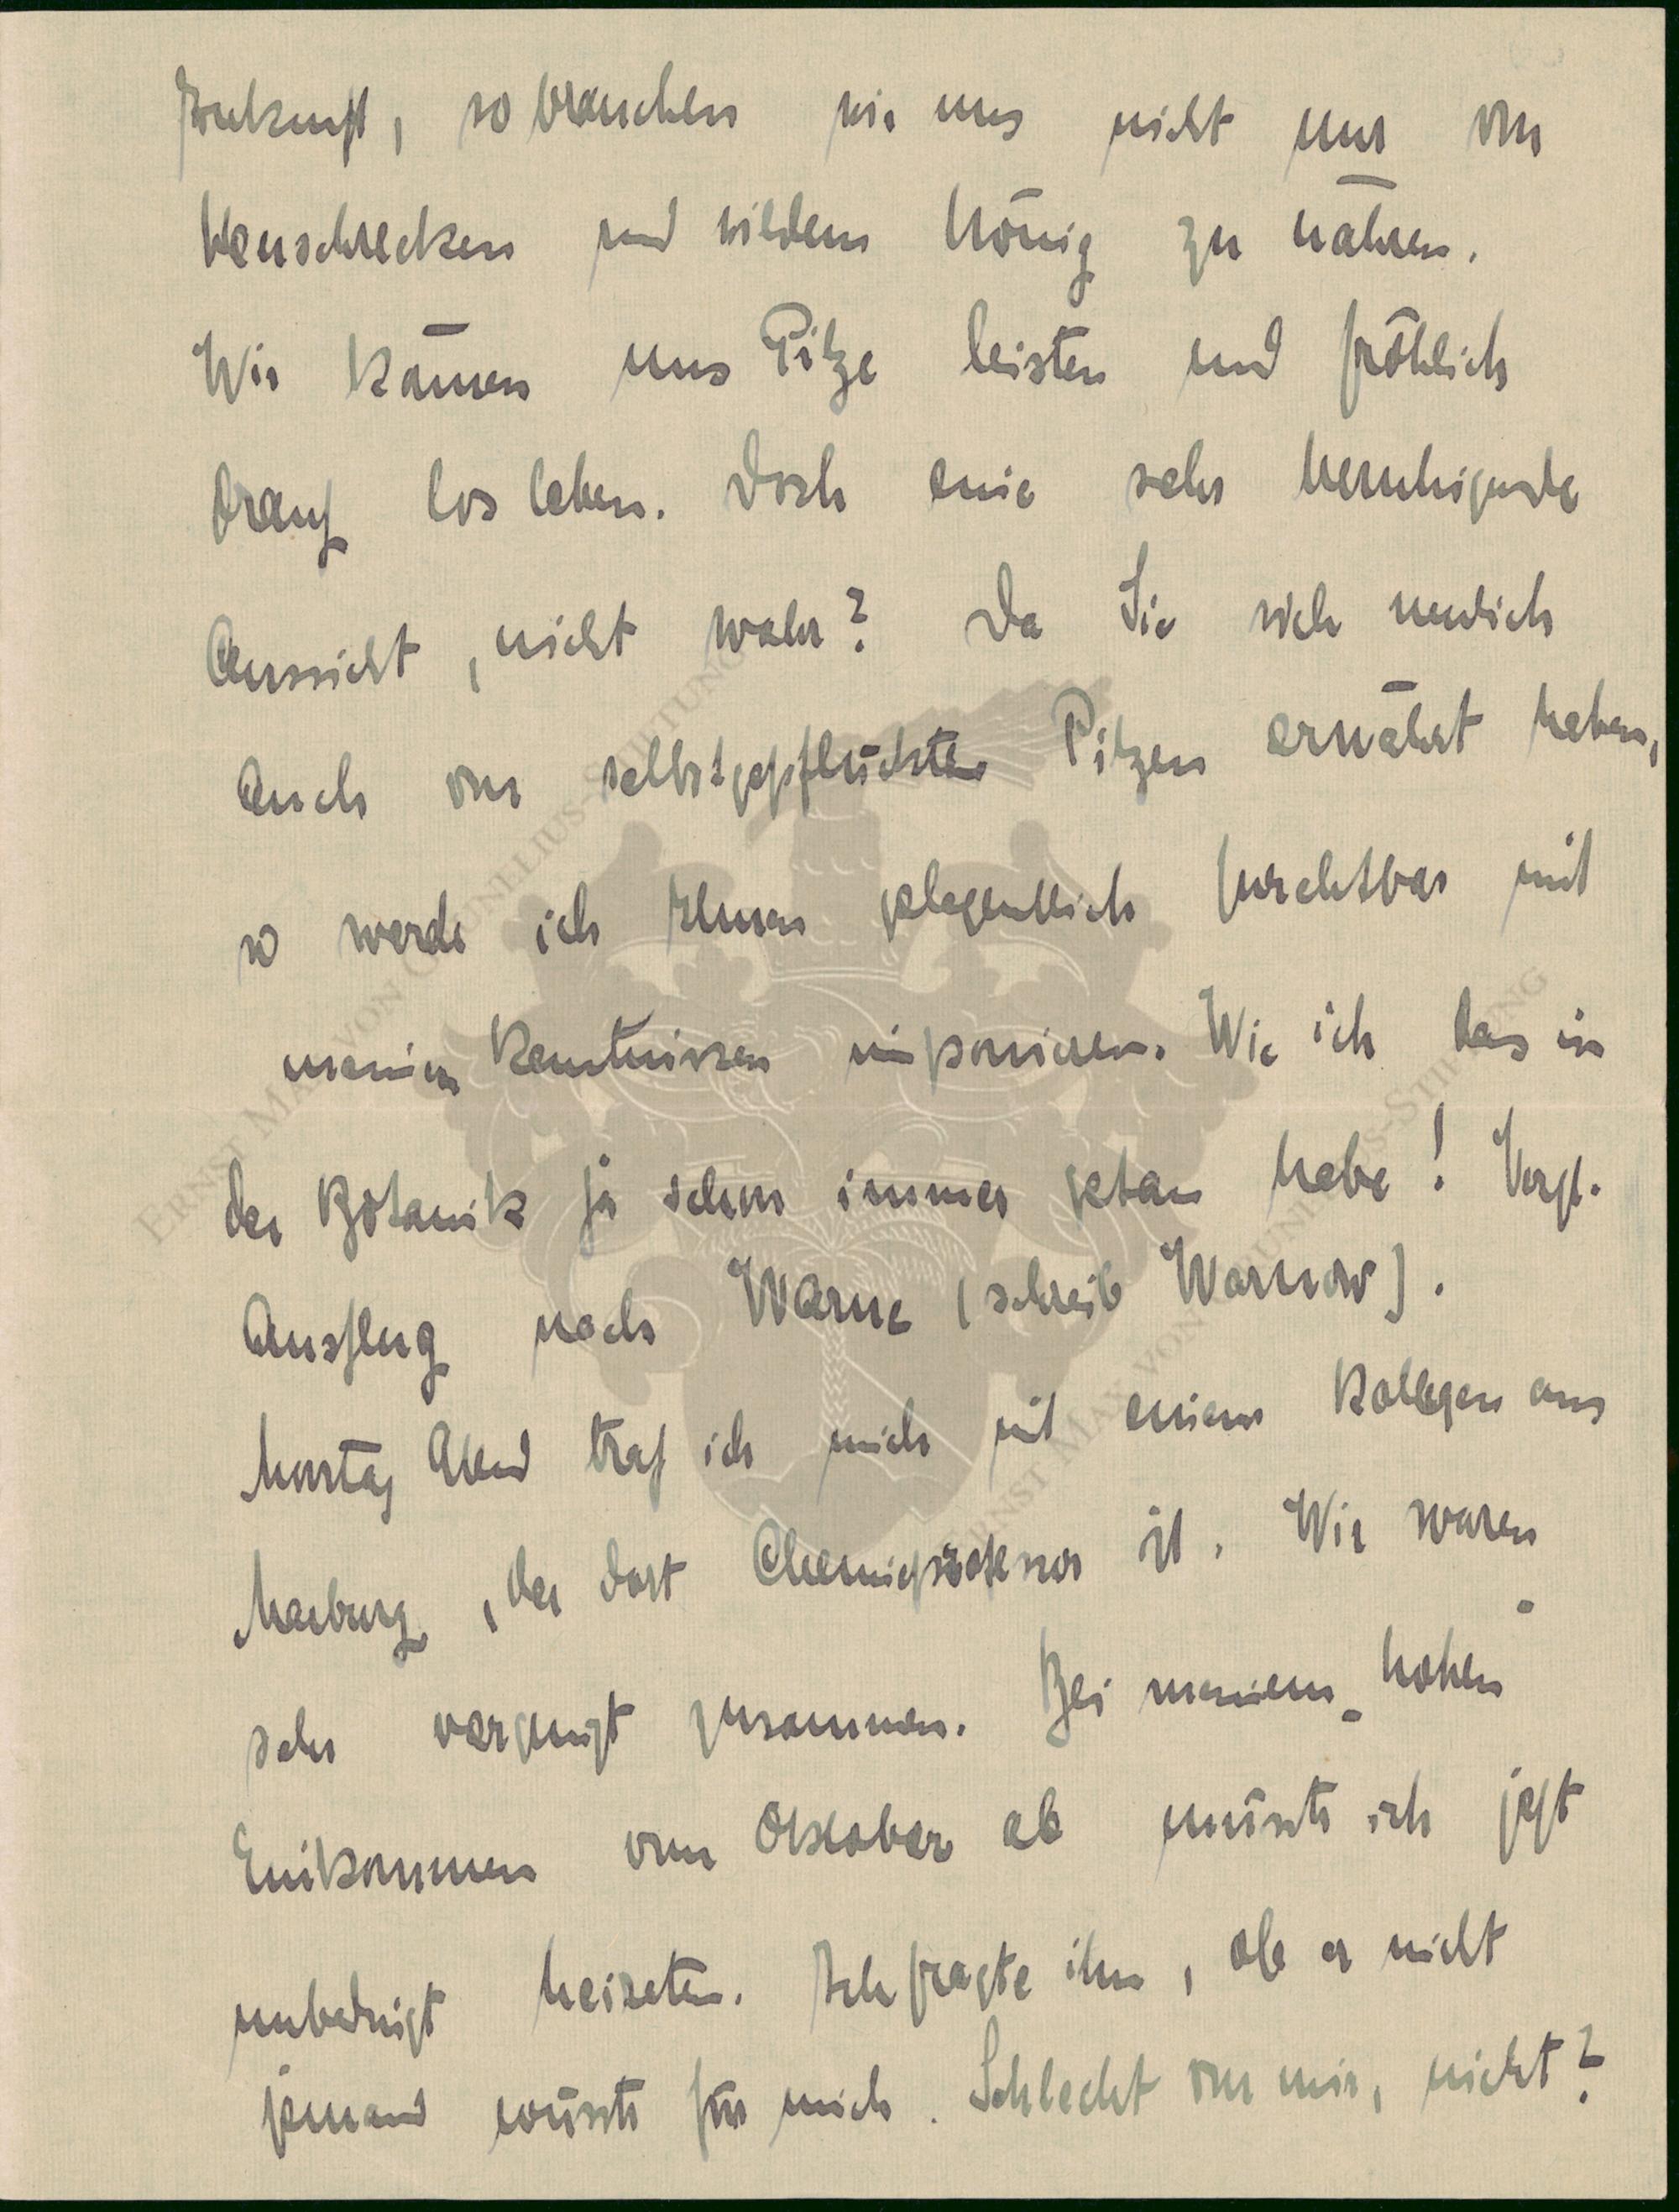 Zukunft, so brauchen wir uns nicht nur von
Heuschrecken und wildem Hönig zu nähren.
Wir können uns Pilze leisten und fröhlich
drauf los leben. Doch eine sehr beruhigende
Aussicht, nicht wahr? Da Sie sich neulich
auch von selbstgepflückten Pilzen ernährt haben,
so werde ich Ihnen gelegentlich furchtbar mit
meinen Kentnissen imponieren. Wie ich das in
der Botanik ja schon immer getan habe! Vergl.
Ausflug nach Warne (schreib Warnow).
Montag Abend traf ich mich mit einem Kollegen aus
Marburg, der dort Chemieprofessor ist. Wir waren
sehr vergnügt zusammen. Bei meinem "hohen"
Einkommen vom Oktober ab müsste ich jetzt
unbedingt heiraten. Ich fragte ihn, ob er nicht
jemand wüsste für mich. Schlecht von mir, nicht?
ERNST MAX VON GRUNELIUS-STIFTUNG
ERNST MAX VON GRUNELIUS-STIFTUNG